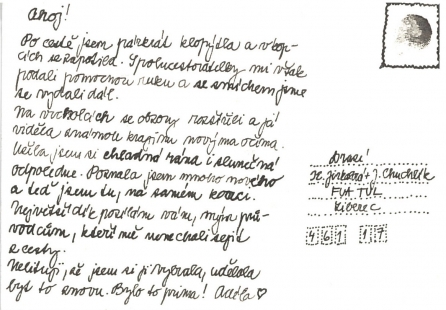 Ahoj!
Po cestě jsem párkrát klopýtla a v kop-
cích se zapotila. Spolucestovatelky mi však
podali pomocnou ruku a se smíchem jsme
se vydali dál.
Na vrcholcích se obzory rozšířili a já
viděla známou krajinu novýma očima.
Užila jsem si chladná rána i slunečná
odpoledne. Poznala jsem mnoho nového
a teď jsem tu, na samém konci.
Největší dík posílám vám, mým prů-
vodcům, kteří mě nenechali sejít
z cesty.
Nelituji, že jsem si ji vybrala, udělala
bych to znovu. Bylo to prima! Adéla ♡
Drazí
J. Chuchlík
FUA TUL
Liberec
461 17